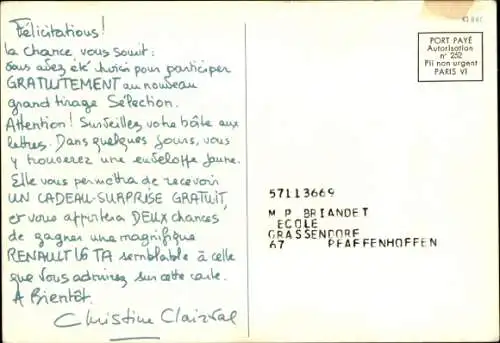 Félicitations!
la chance vous sourit:
vous avez été choisi pour participer
GRATUITEMENT au nouveau
grand tirage Sélection.
Attention! Surveillez votre boîte aux
lettres. Dans quelques jours, vous
y trouverez une enveloppe jaune.
Elle vous permettra de recevoir
UN CADEAU-SURPRISE GRATUIT,
et vous apportera DEUX chances
de gagner une magnifique
RENAULT 16 TA semblable à celle
que vous admirez sur cette carte.
A Bientôt.
Christine Clairval
PORT PAYÉ
Autorisation
n° 252
Pli non urgent
PARIS VI
57113669
M P BRIANDET
ECOLE
GRASSENDORF
67 PFAFFENHOFFEN